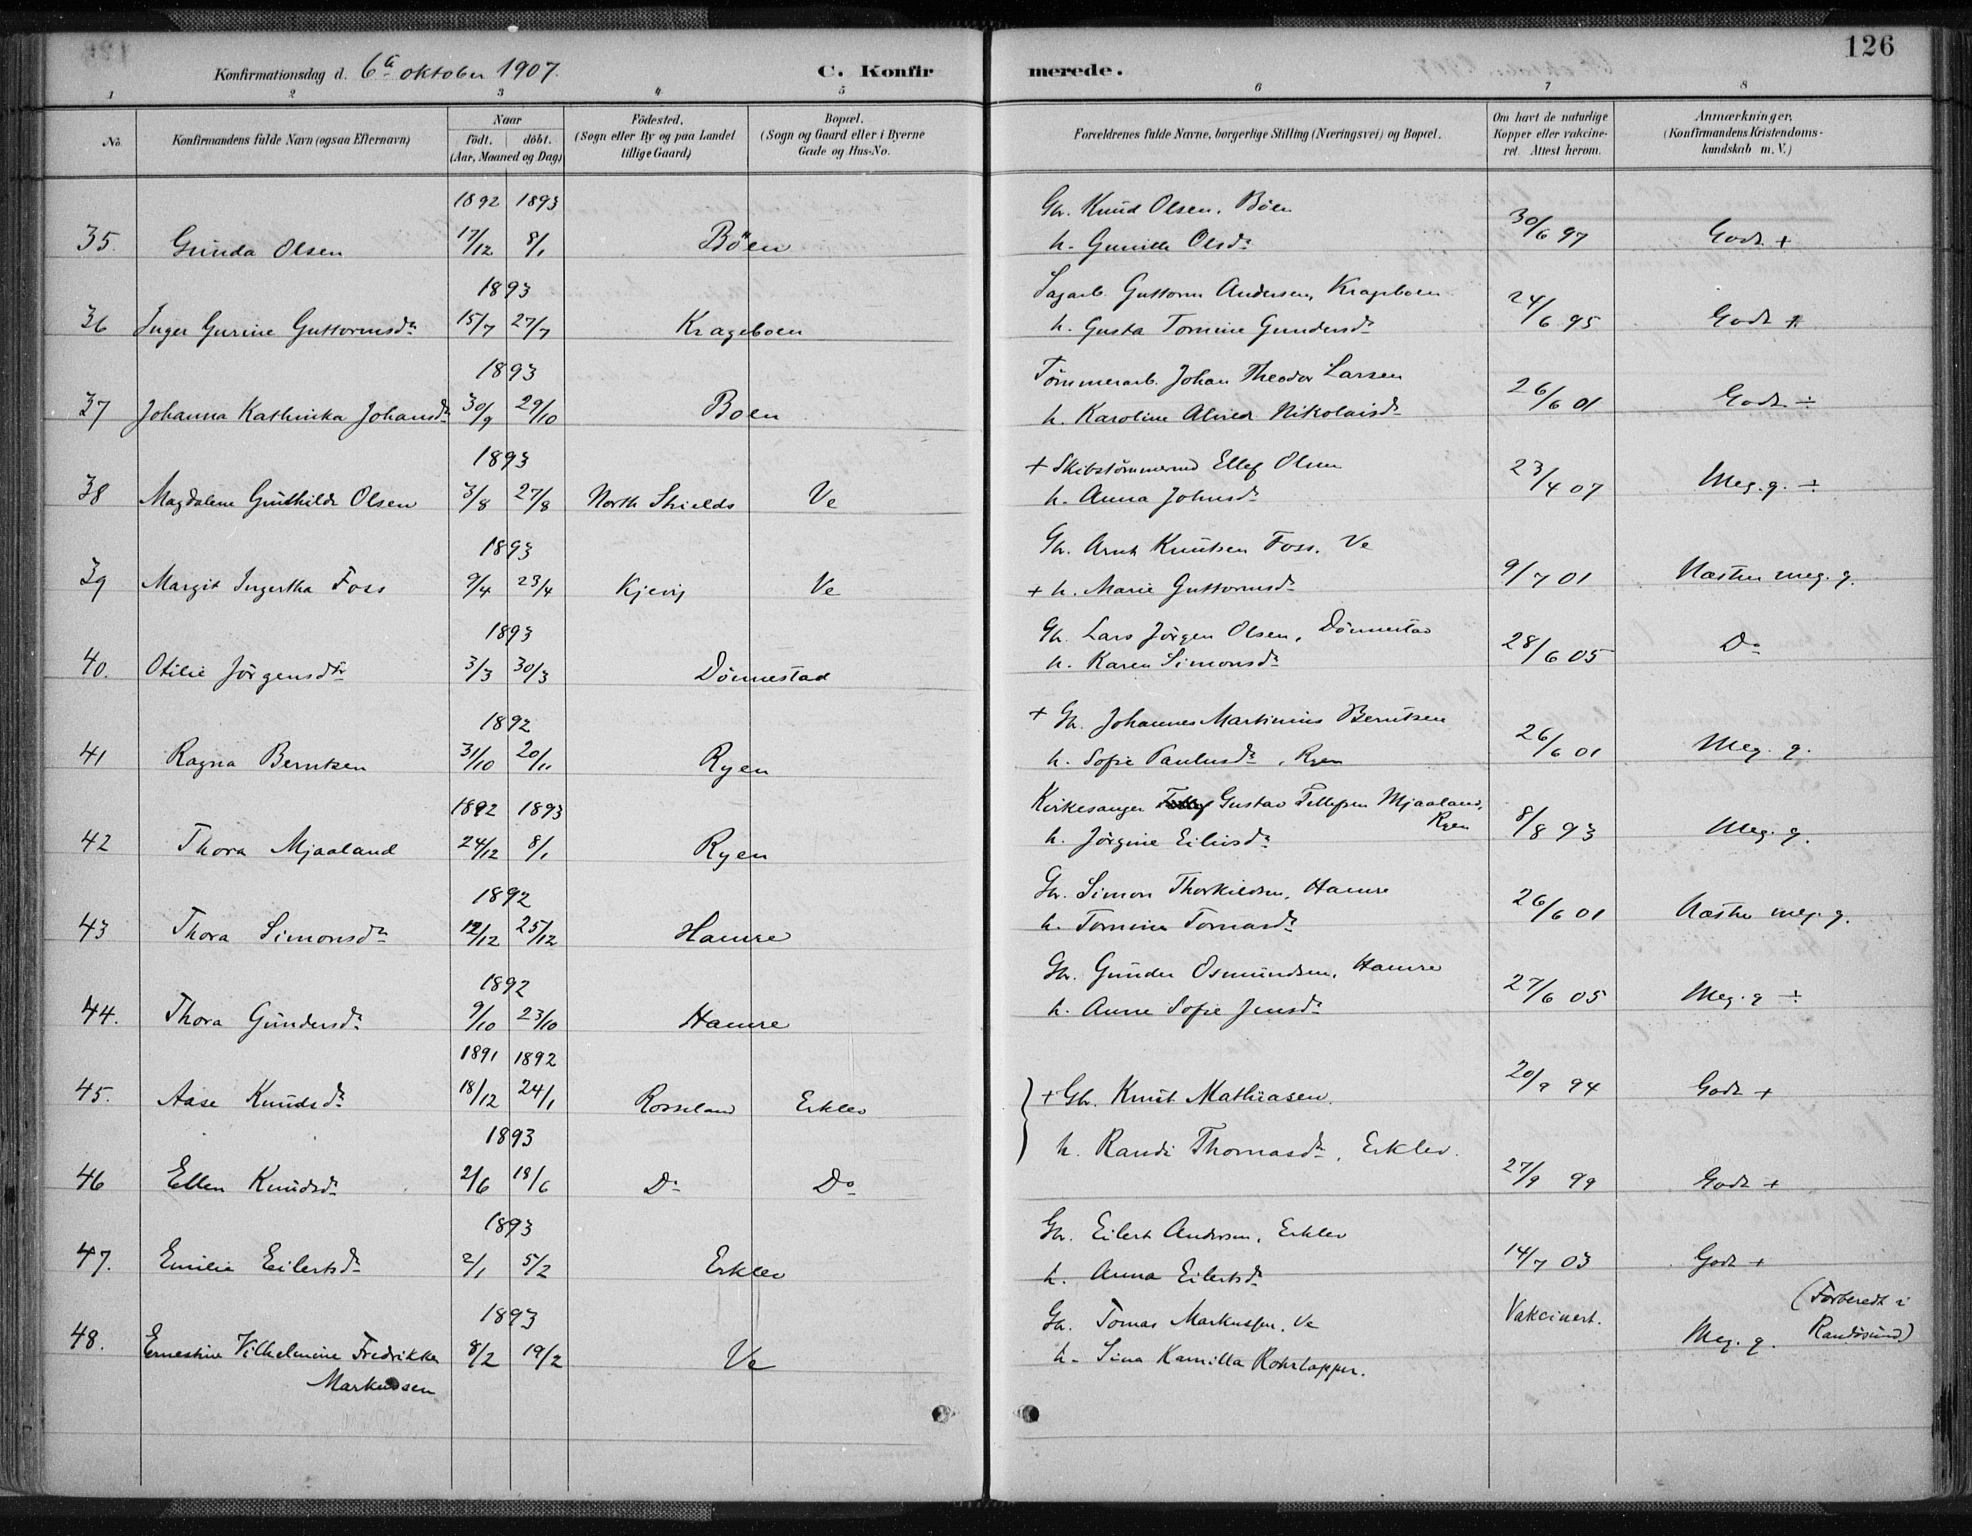 126
Konfirmationsdag d. 6te oktober 1907. C. Konfirmerede.
1 2 3 4 5 6 7 8
No. Konfirmandens fulde Navn (ogsaa Efternavn) Naar födt. döbt. (Aar, Maaned og Dag) Födested. (Sogn eller By og paa Landet tillige Gaard) Bopæl. (Sogn og Gaard eller i Byerne Gade og Hus-No. Forældrenes fulde Navne, borgerlige Stilling (Næringsvei) og Bopæl. Om havt de naturlige Kopper eller vakcineret. Attest herom. Anmærkninger, (Konfirmandens Kristendomskundskab m. V.)
1892 1893 Gbr. Knud Olsen, Böen
35. Gunda Olsen 17/12 8/1 Böen h. Gunille Olsdr 30/6 97 Godt +
1893 Sagarb. Guttorm Andersen, Krageboen
36 Inger Gurine Guttormsdr 15/7 27/7 Krageboen h. Gusta Tomine Gundersdr 24/6 95 Godt +
1893 Tömmerarb. Johan Theodor Larsen
37 Johanna Kathinka Johansdr 30/9 29/10 Boen h. Karoline Nikolaisdr 26/6 01 Godt ÷
1893 + Skibstömmermd Ellef Olsen
38 Magdalene Gunhilde Olsen 3/8 27/8 North Shields Ve h. Anna Johnsdr 23/4 07 Meg. g. ÷
1893 Gbr. Arnt Knutsen Foss. Ve
39 Margit Ingertha Foss 9/4 23/4 Kjevig Ve + h. Marie Guttormsdr 9/7 01 Næsten meg. g.
1893 Gbr. Lars Jörgen Olsen, Dönnestad
40. Otilie Jörgensdtr 3/3 30/3 Dönnestad h. Karen Simonsdr 28/6 05 Do
1892 + Gbr. Johannes Martinius Berntsen
41 Ragna Berntsen 31/10 20/11 Ryen h. Sofie Paulusdr, Ryen 26/6 01 Meg. g.
1892 1893 Kirkesanger Gustav Tellefsen Mjaaland, Ryen
42 Thora Mjaaland 24/12 8/1 Ryen h. Jörgine Eiliisdr 8/8 93 Meg. g.
1892 Gbr. Simon Thorkildsen, Hamre
43 Thora Simonsdr 12/12 25/12 Hamre h. Tomine Tomasdr 26/6 01 Næsten meg. g.
1892 Gbr. Gunder Osmundsen, Hamre
44. Thora Gundersdr 9/10 23/10 Hamre h. Anne Sofie Jensdr 27/6 05 Meg. g ÷
1891 1892
45. Aase Knudsdr 18/12 24/1 Rosseland Erklev + Gbr. Knut Mathiasen. 20/9 94 Godt +
1893 h. Randi Thomasdr, Erklev.
46 Ellen Knudsdr 2/6 18/6 Do Do 27/9 99 Godt +
1893 Gbr. Eilert Andersen, Erklev
47. Emilie Eilertsdr 2/1 5/2 Erklev h. Anna Eilertsdr 14/7 03 Godt +
1893 Gbr. Tomas Markussen, Ve Vakcinert. (Forberedt i Randösund)
48. Ernestine Vilhelmine Fredrikke 8/2 19/2 Ve h. Sina Kamilla Rohrtapper. Meg. g.
Markussen